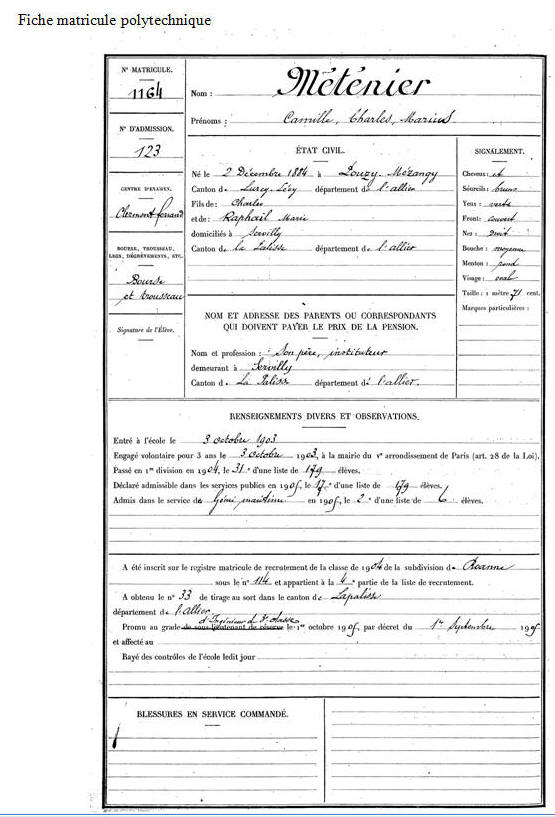 Fiche matricule polytechnique
N° MATRICULE.
1164
N° D'ADMISSION.
123
CENTRE D'EXAMEN.
Clermont ferrand
BOURSE, TROUSSEAU,
DÉGRÈVEMENTS, ETC.
Bourse
et trousseau
Signature de l'Élève.
Nom : Méténier
Prénoms : Camille, Charles, Marius
ÉTAT CIVIL.
Né le 2 Décembre 1884 à Pouzy-Mézangy
Canton de Lurcy-Lévy département de l'allier
Fils de : Charles
et de : Raphaël Marie
domiciliés à Servilly
Canton de la Palisse département de l'allier
SIGNALEMENT.
Cheveux : et
Sourcils : bruns
Yeux : verts
Front : ouvert
Nez : droit
Bouche : moyenne
Menton : rond
Visage : oval
Taille : 1 mètre 71 cent.
Marques particulières :
NOM ET ADRESSE DES PARENTS OU CORRESPONDANTS
QUI DOIVENT PAYER LE PRIX DE LA PENSION.
Nom et profession : Son père, instituteur
demeurant à Servilly
Canton de La Palisse département de l'allier.
RENSEIGNEMENTS DIVERS ET OBSERVATIONS.
Entré à l'école le 3 octobre 1903
Engagé volontaire pour 3 ans le 3 octobre 1903, à la mairie du Ve arrondissement de Paris (art. 28 de la Loi).
Passé en 1re division en 1904, le 31e d'une liste de 179 élèves.
Déclaré admissible dans les services publics en 1905, le 17e d'une liste de 179 élèves.
Admis dans le service de Génie maritime en 1905, le 2e d'une liste de 6 élèves.
A été inscrit sur le registre matricule de recrutement de la classe de 1904 de la subdivision de Roanne
sous le n° 114 et appartient à la 4e partie de la liste de recrutement.
A obtenu le n° 33 de tirage au sort dans le canton de Lapalisse
département de l'allier
d'Ingénieur de 3e classe
Promu au grade de sous-lieutenant de réserve le 1er octobre 1905, par décret du 1er Septembre 1905
et affecté au
Rayé des contrôles de l'école ledit jour
BLESSURES EN SERVICE COMMANDÉ.